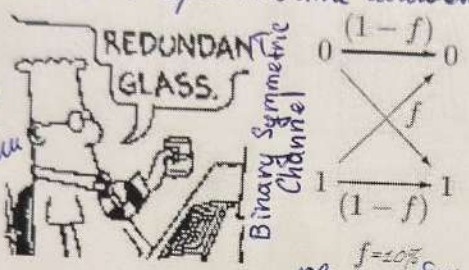 REDUNDANT
GLASS.
Binary Symmetric
Channel
(1 − f)
0 0
f
1 1
(1 − f)
f=10%